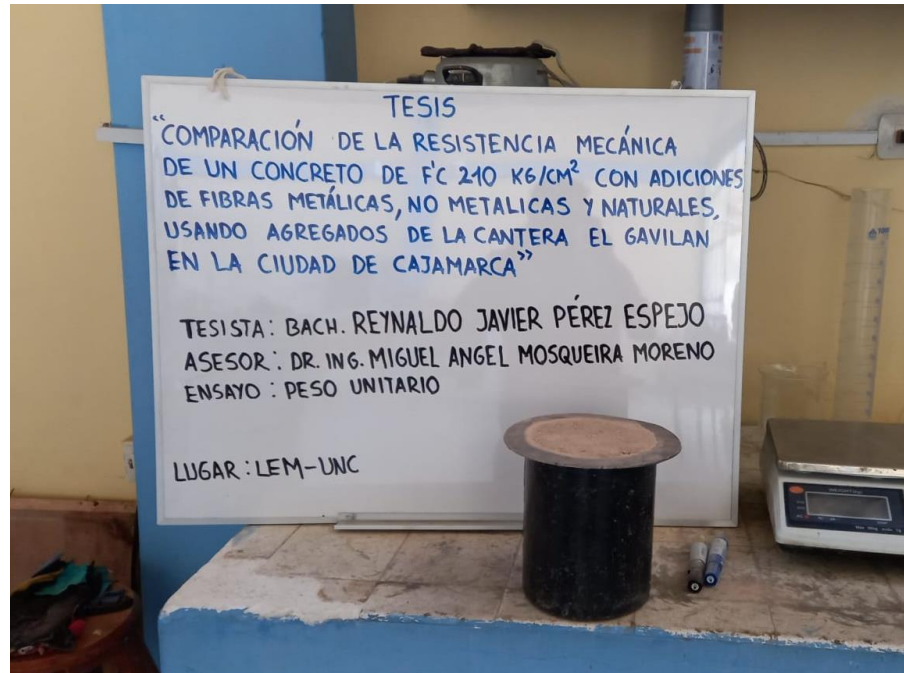 TESIS
“COMPARACIÓN DE LA RESISTENCIA MECÁNICA
DE UN CONCRETO DE F'C 210 KG/CM² CON ADICIONES
DE FIBRAS METÁLICAS, NO METALICAS Y NATURALES,
USANDO AGREGADOS DE LA CANTERA EL GAVILAN
EN LA CIUDAD DE CAJAMARCA”
TESISTA: BACH. REYNALDO JAVIER PÉREZ ESPEJO
ASESOR: DR. ING. MIGUEL ANGEL MOSQUEIRA MORENO
ENSAYO: PESO UNITARIO
LUGAR: LEM-UNC